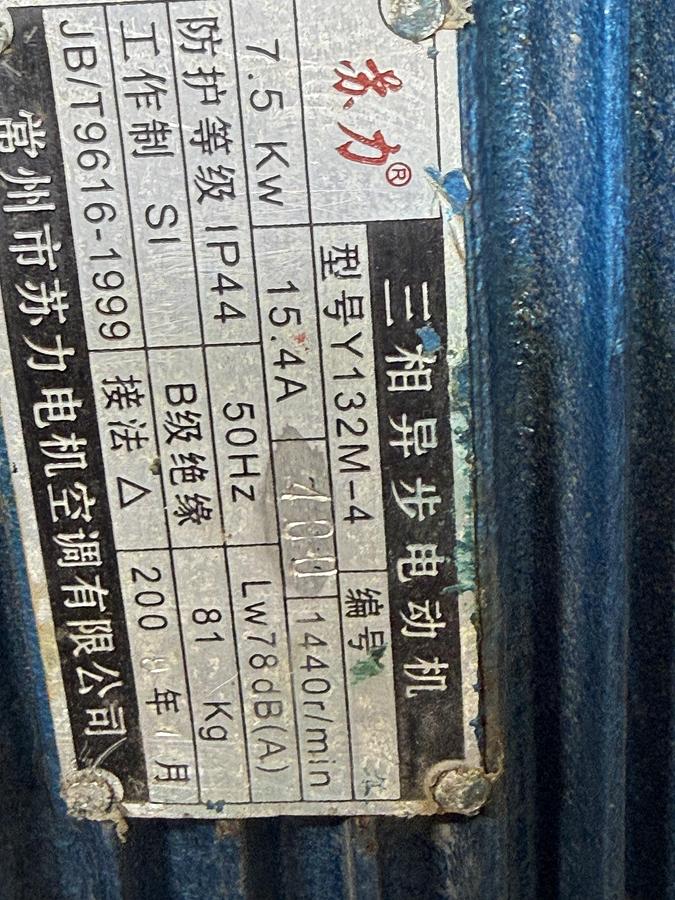 苏力®
三相异步电动机
型号Y132M-4 编号
7.5 Kw 15.4A 400 1440r/min
防护等级 IP44 50Hz Lw78dB(A)
工作制 S1 B级绝缘 81 Kg
JB/T9616-1999 接法 △ 200 年 月
常州市苏力电机空调有限公司